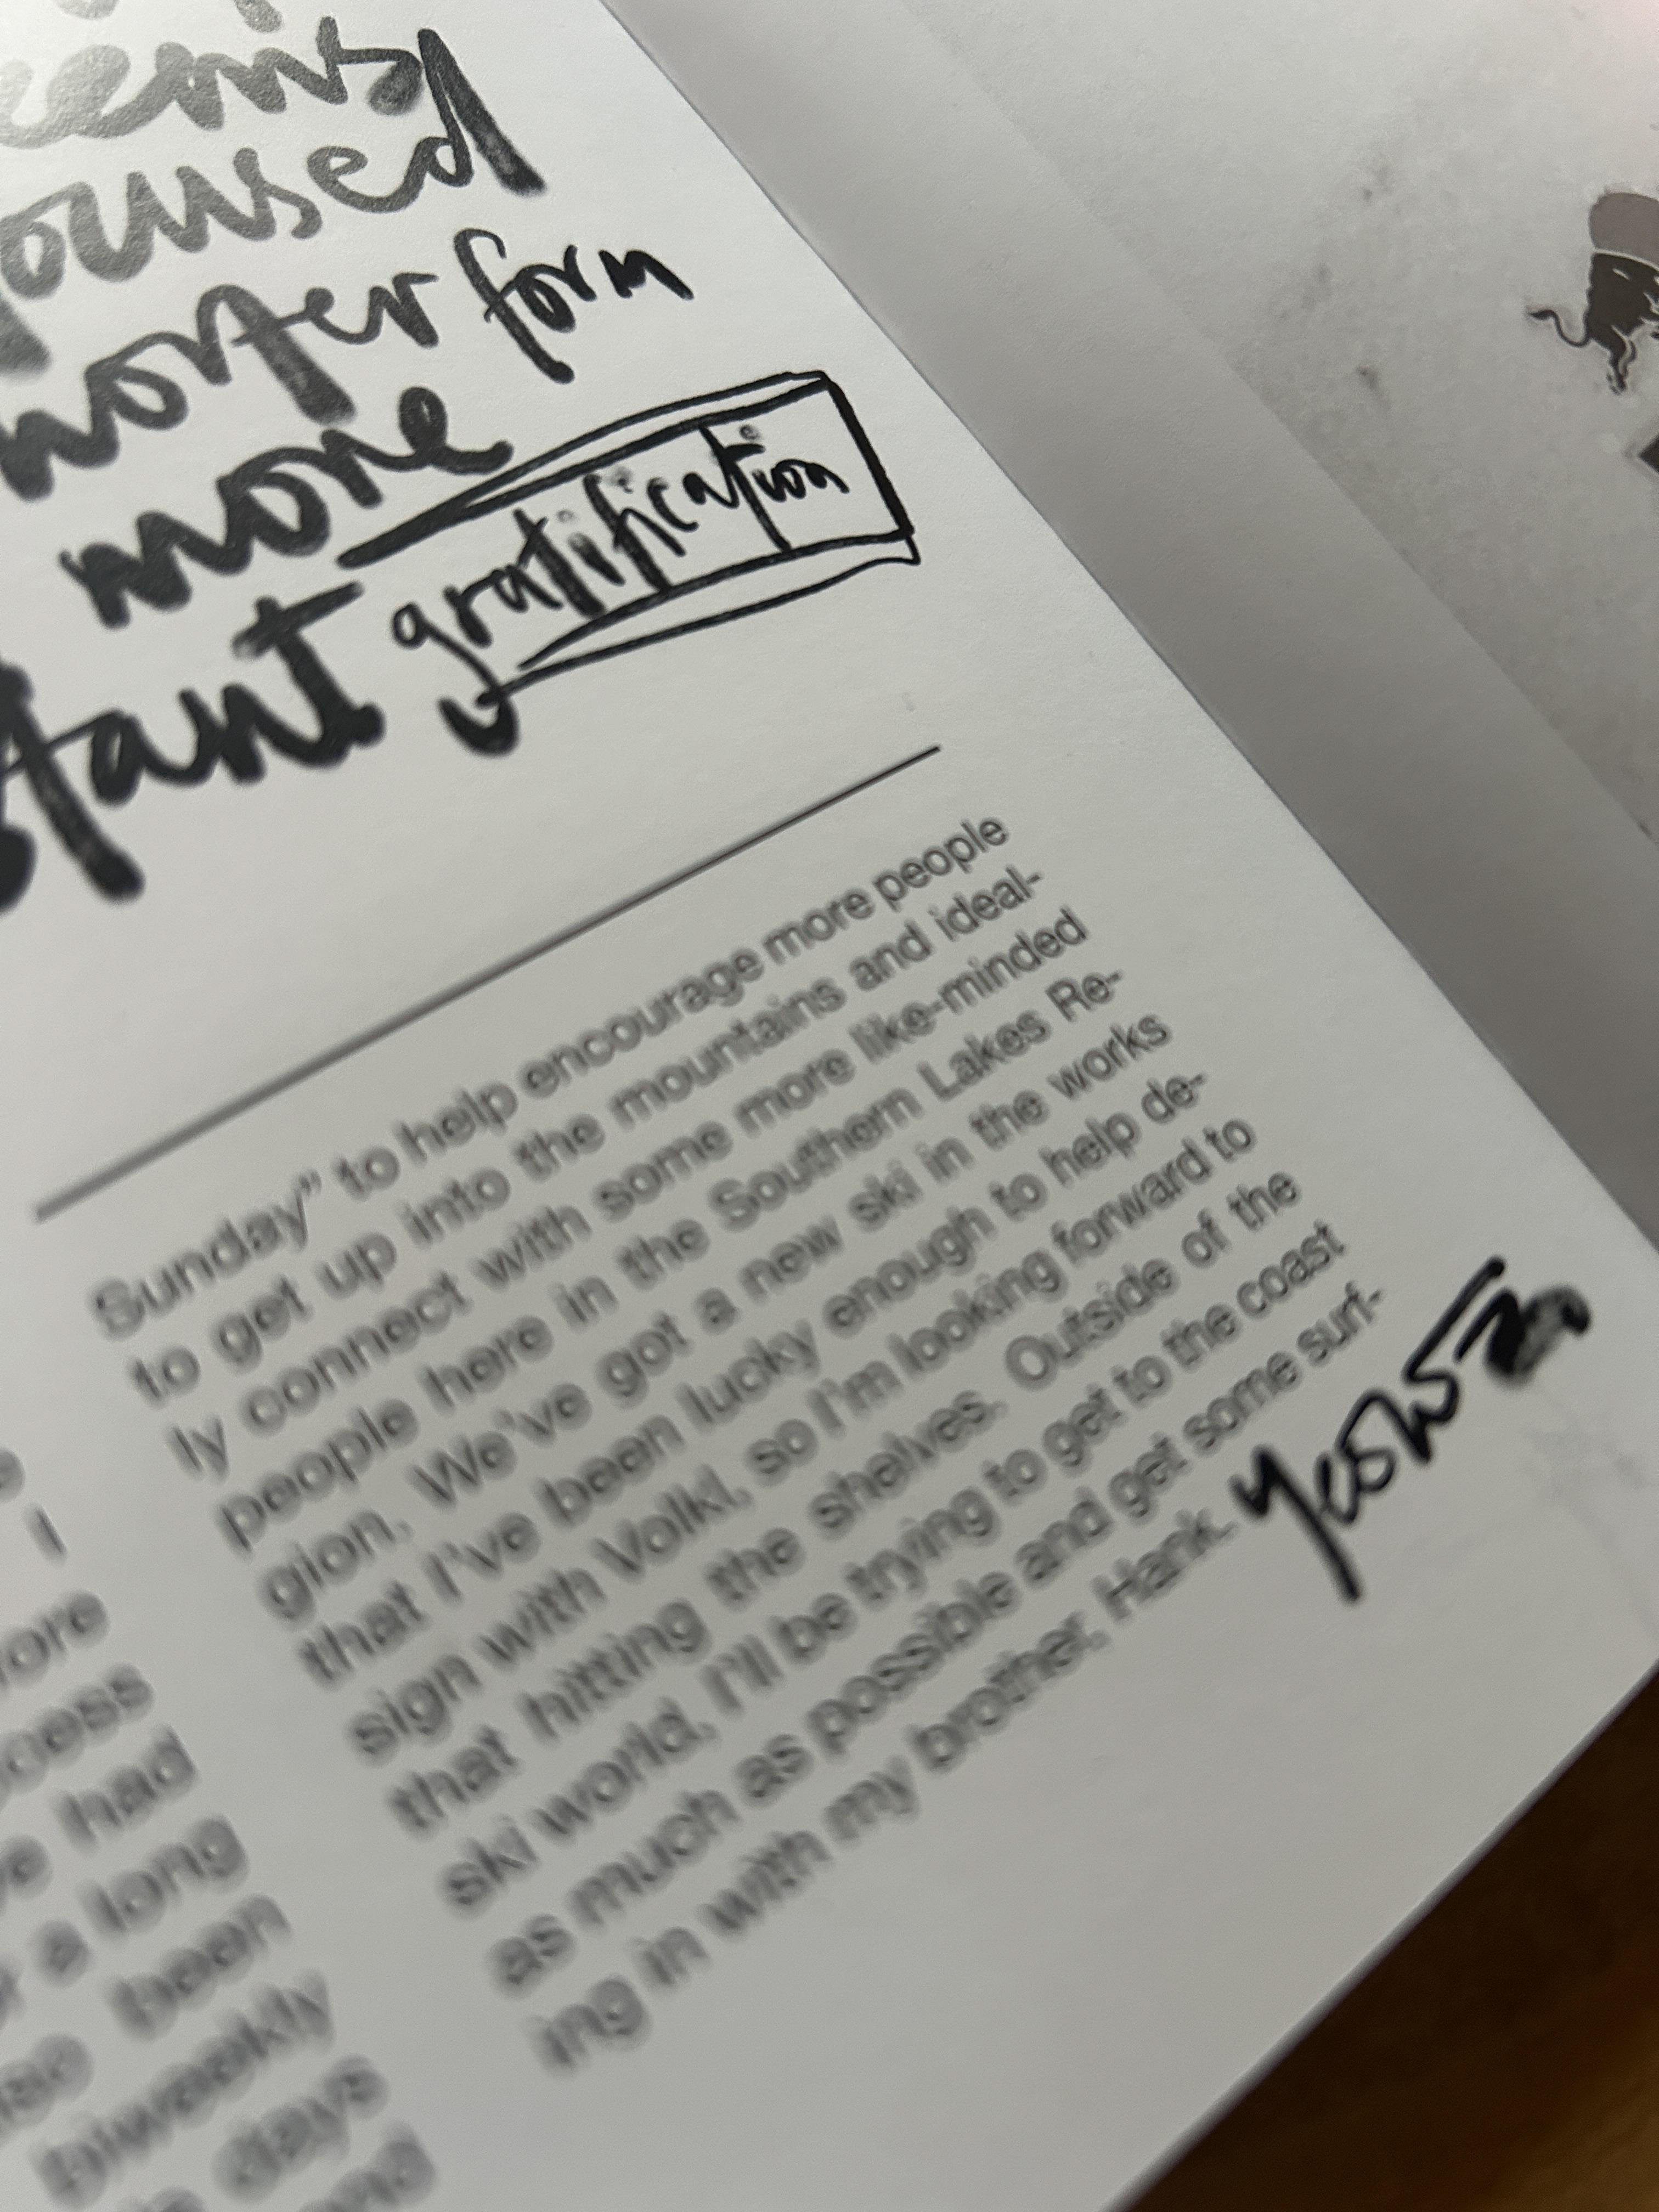 form
more
gratification
Sunday" to help encourage more people
to get up into the mountains and ideal-
ly connect with some more like-minded
people here in the Southern Lakes Re-
gion. We've got a new ski in the works
that I've been lucky enough to help de-
sign with Volkl, so I'm looking forward to
that hitting the shelves. Outside of the
ski world, I'll be trying to get to the coast
as much as possible and get some surf-
ing in with my brother, Hank.
I
had
a long
been
biweekly
days